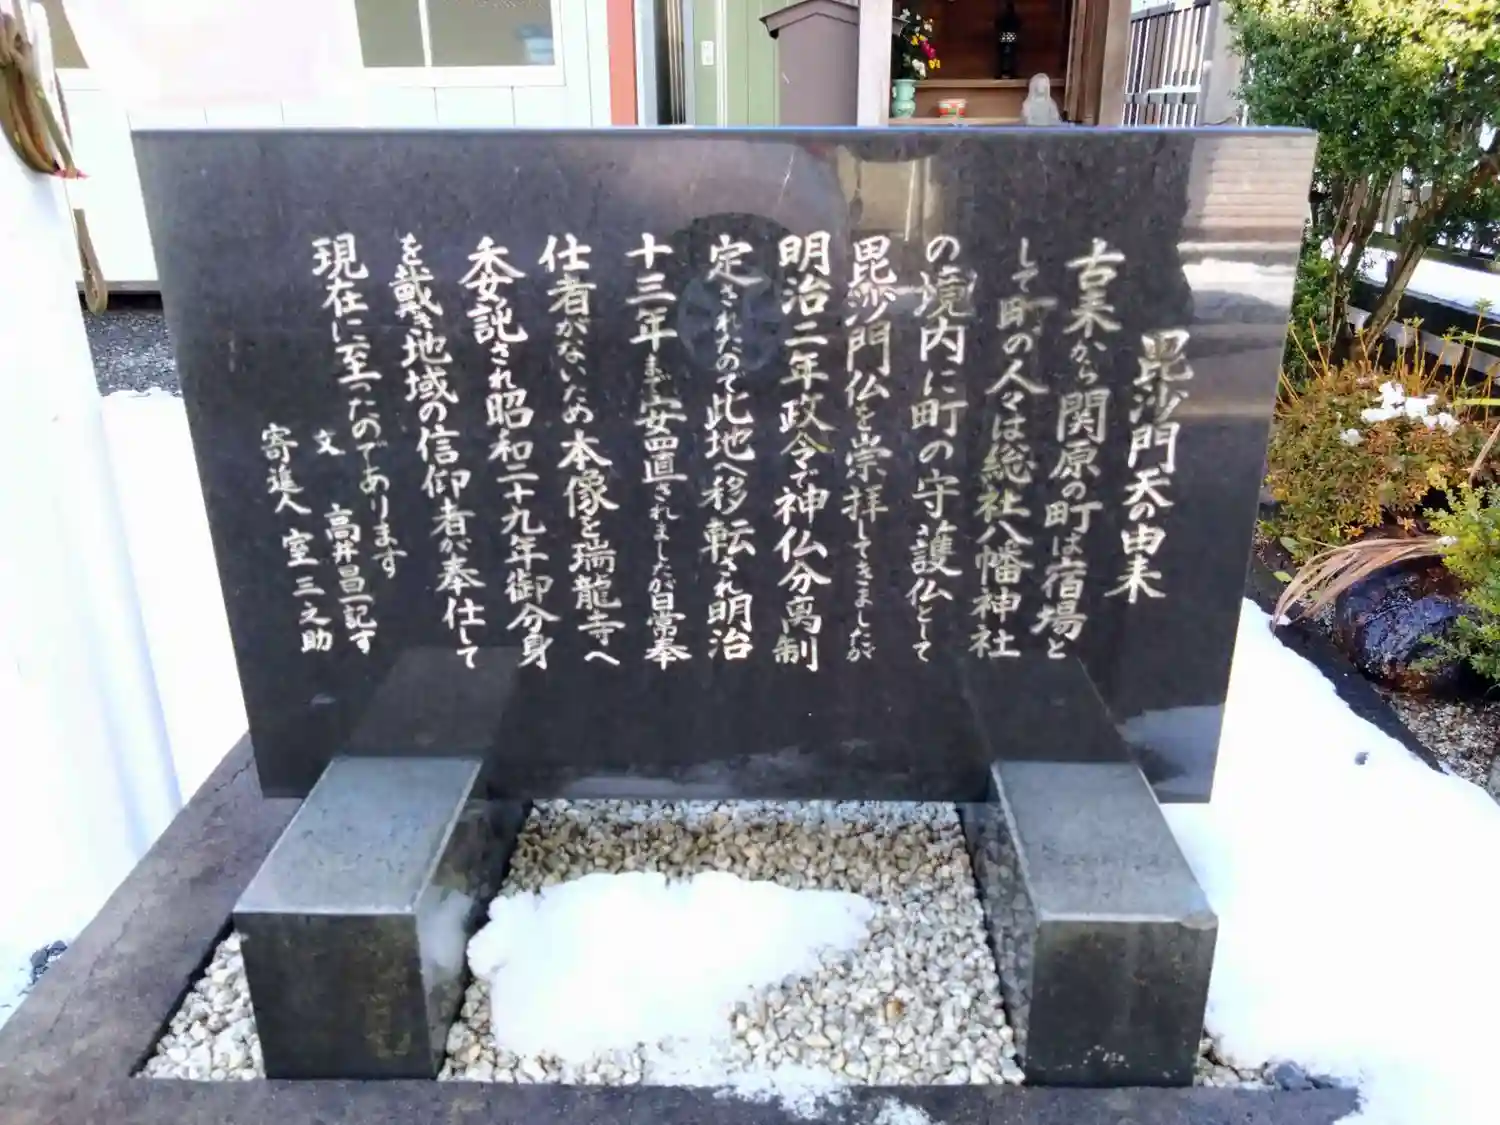 毘沙門天の由来
古来から関原の町は宿場と
して町の人々は総社八幡神社
の境内に町の守護仏として
毘沙門仏を崇拝してきましたが
明治二年政令で神仏分离制
定されたので此地へ移転され明治
十三年まで安置されましたが日常奉
仕者がないため本像を瑞龍寺へ
委託され昭和二十九年御分身
を戴き地域の信仰者が奉仕して
現在に至ったのであります
文 高井昌一記す
寄進人 室三之助